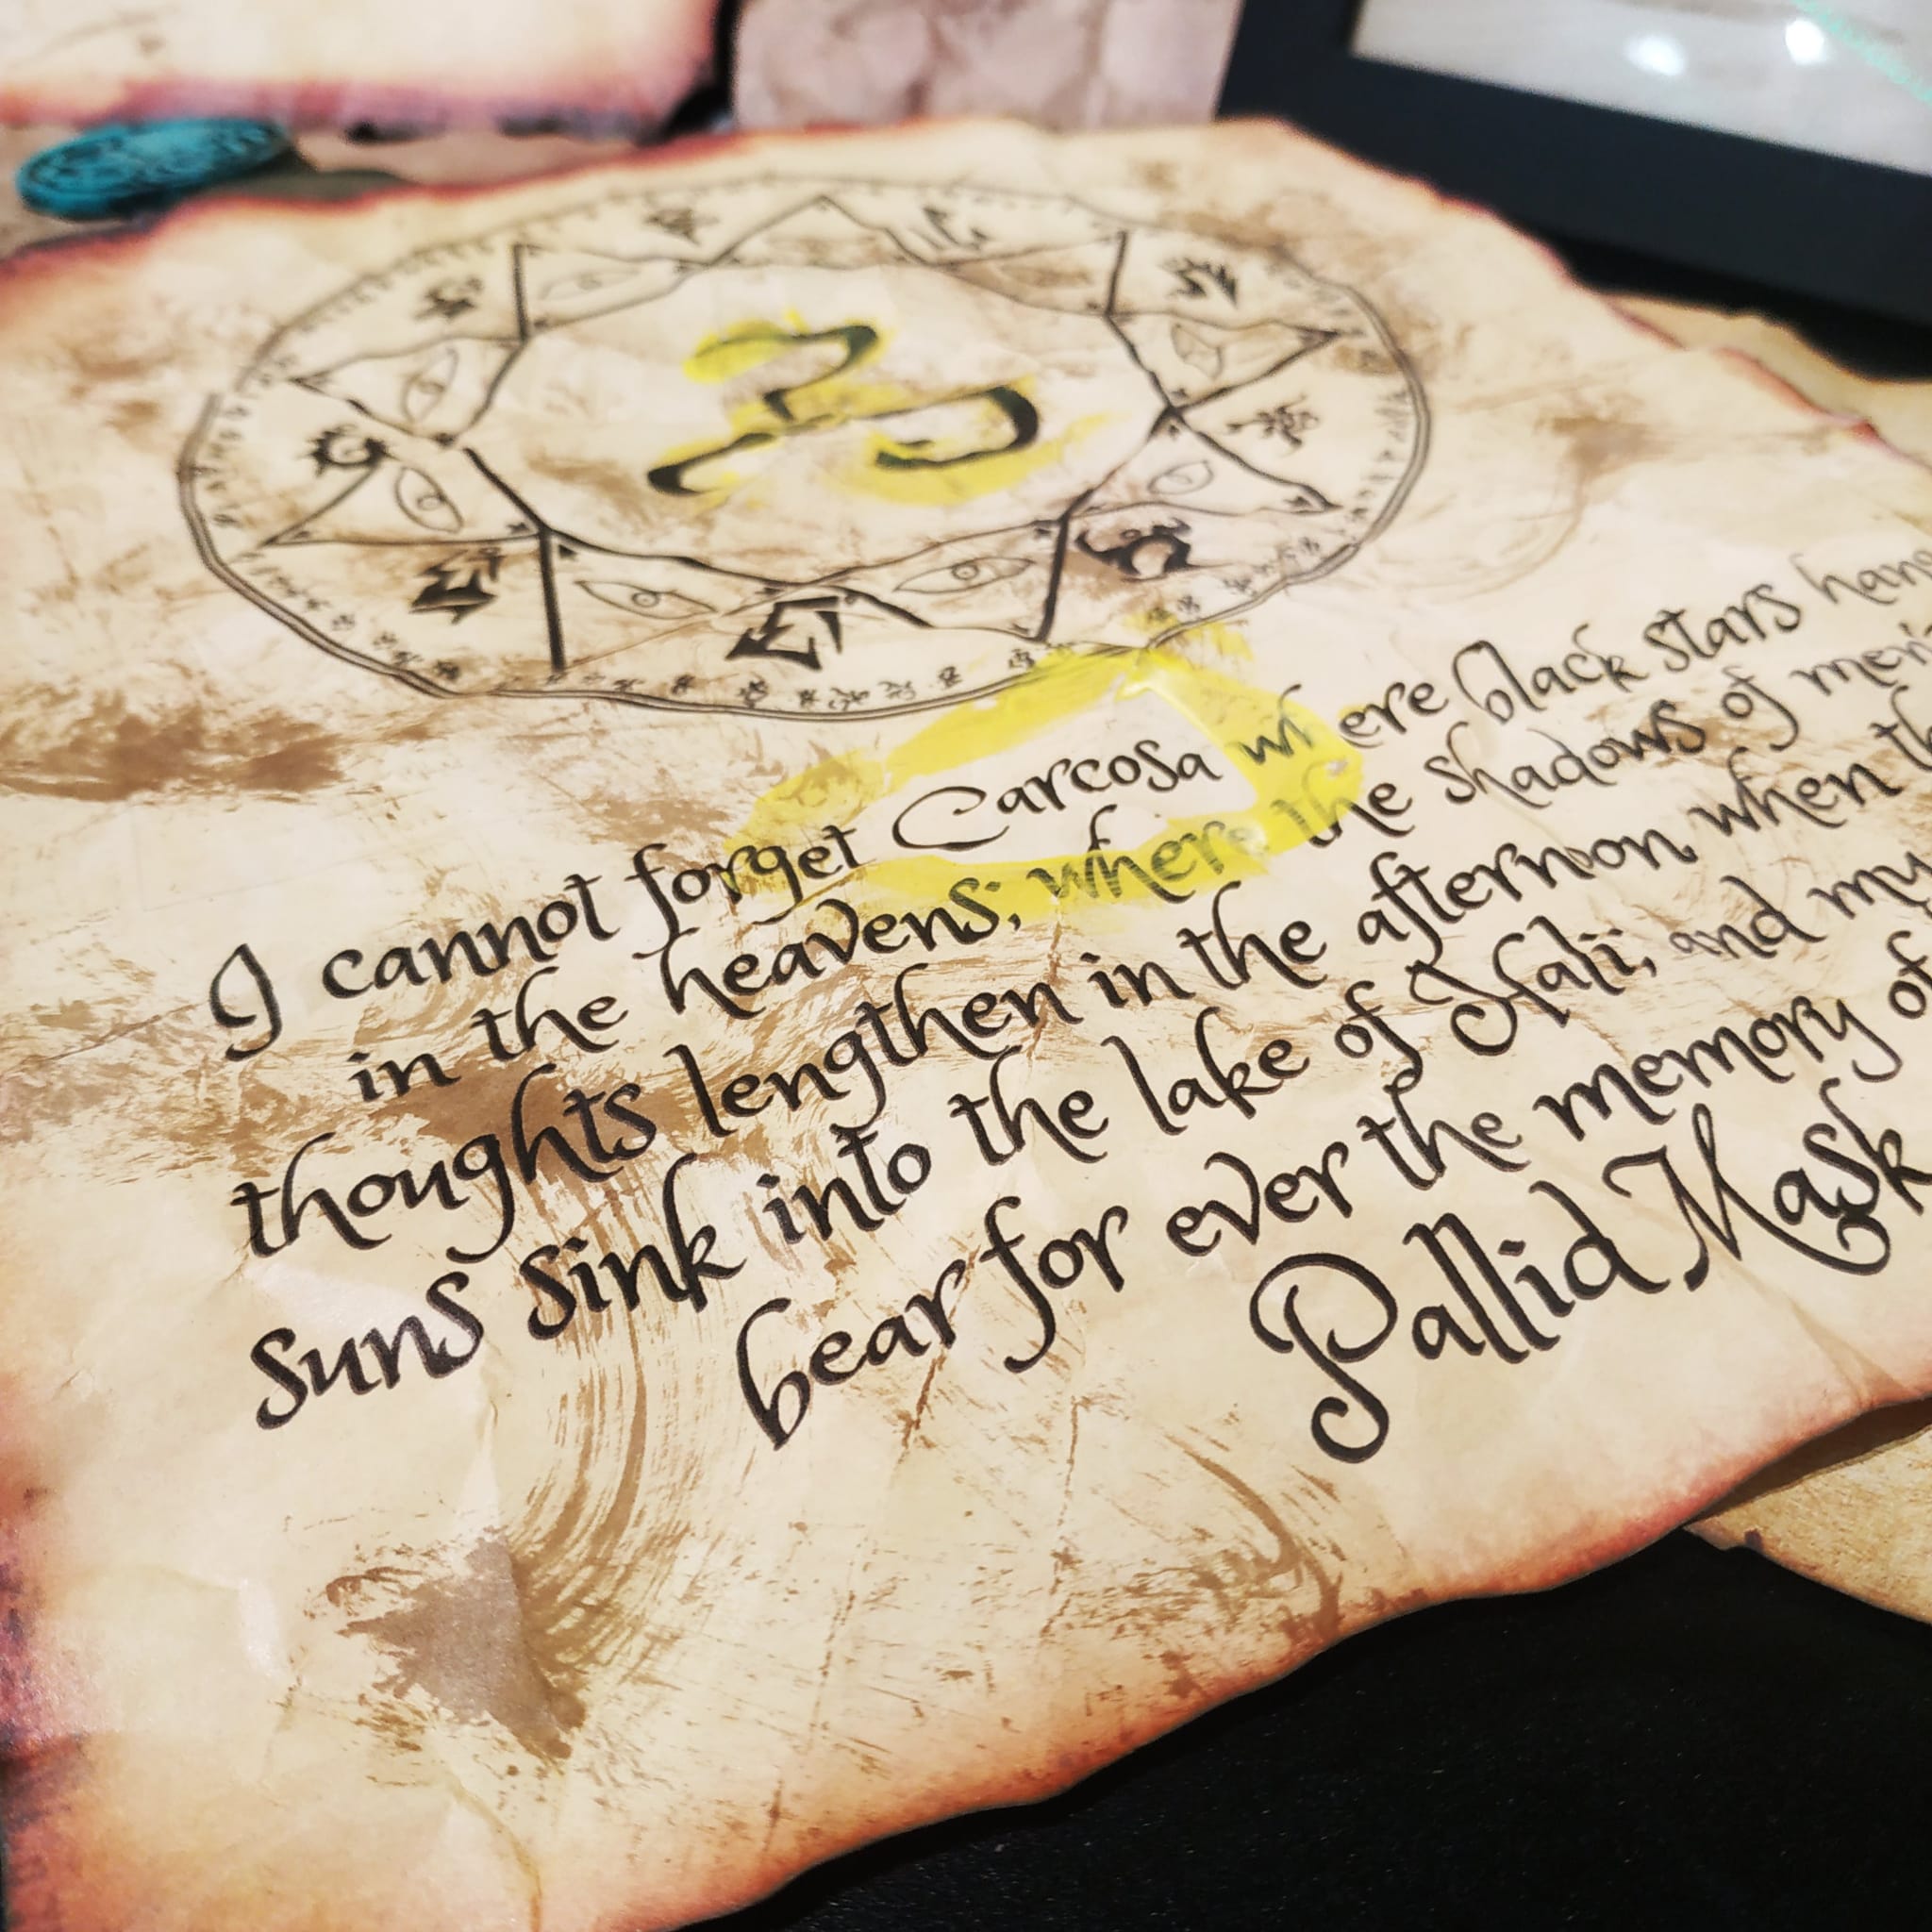 I cannot forget Carcosa where black stars hang
in the heavens; where the shadows of men's
thoughts lengthen in the afternoon when the
suns sink into the lake of Hali; and my
bear for ever the memory of
Pallid Mask